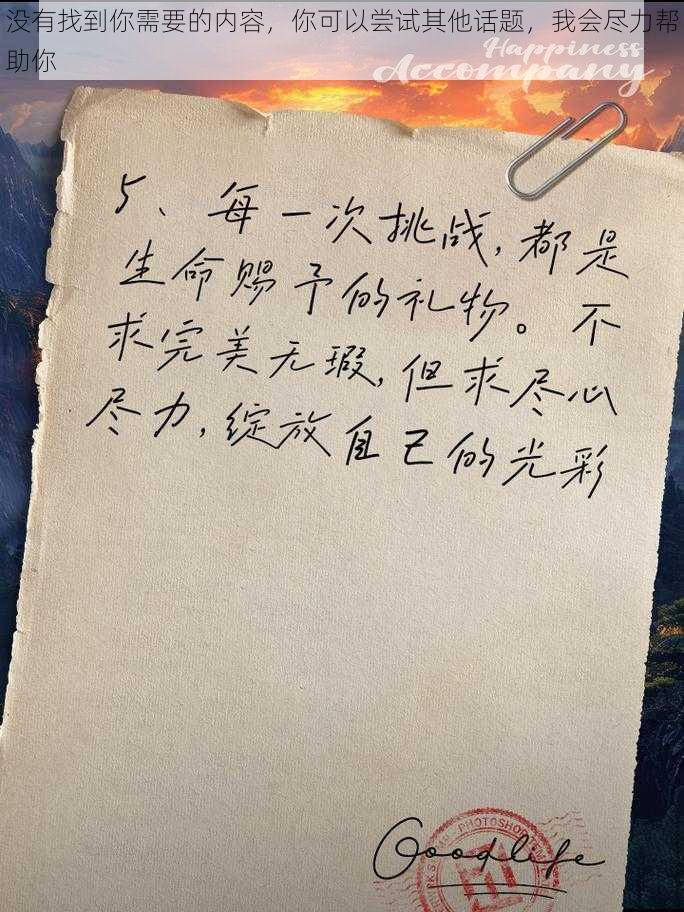 没有找到你需要的内容，你可以尝试其他话题，我会尽力帮
助你
Happiness
Accompany
5、每一次挑战，都是
生命赐予的礼物。不
求完美无瑕，但求尽心
尽力，绽放自己的光彩
PHOTOSHOP
Goodlife